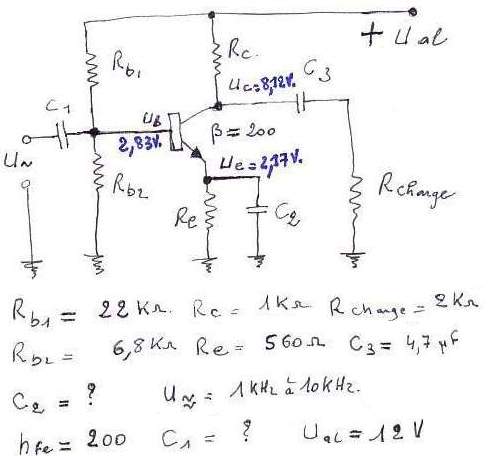 + Ual
Rb1
Rc
Uc=8,12V.
C3
C1
UB
2,83V.
β=200
U~
Ue=2,17V.
Rb2
Re
C2
Rcharge
Rb1 = 22 KΩ. Rc = 1KΩ Rcharge = 2KΩ
Rb2 = 6,8KΩ Re = 560Ω C3 = 4,7 µF
C2 = ? U≈ = 1KHz à 10KHz.
hfe = 200 C1 = ? UaL = 12 V